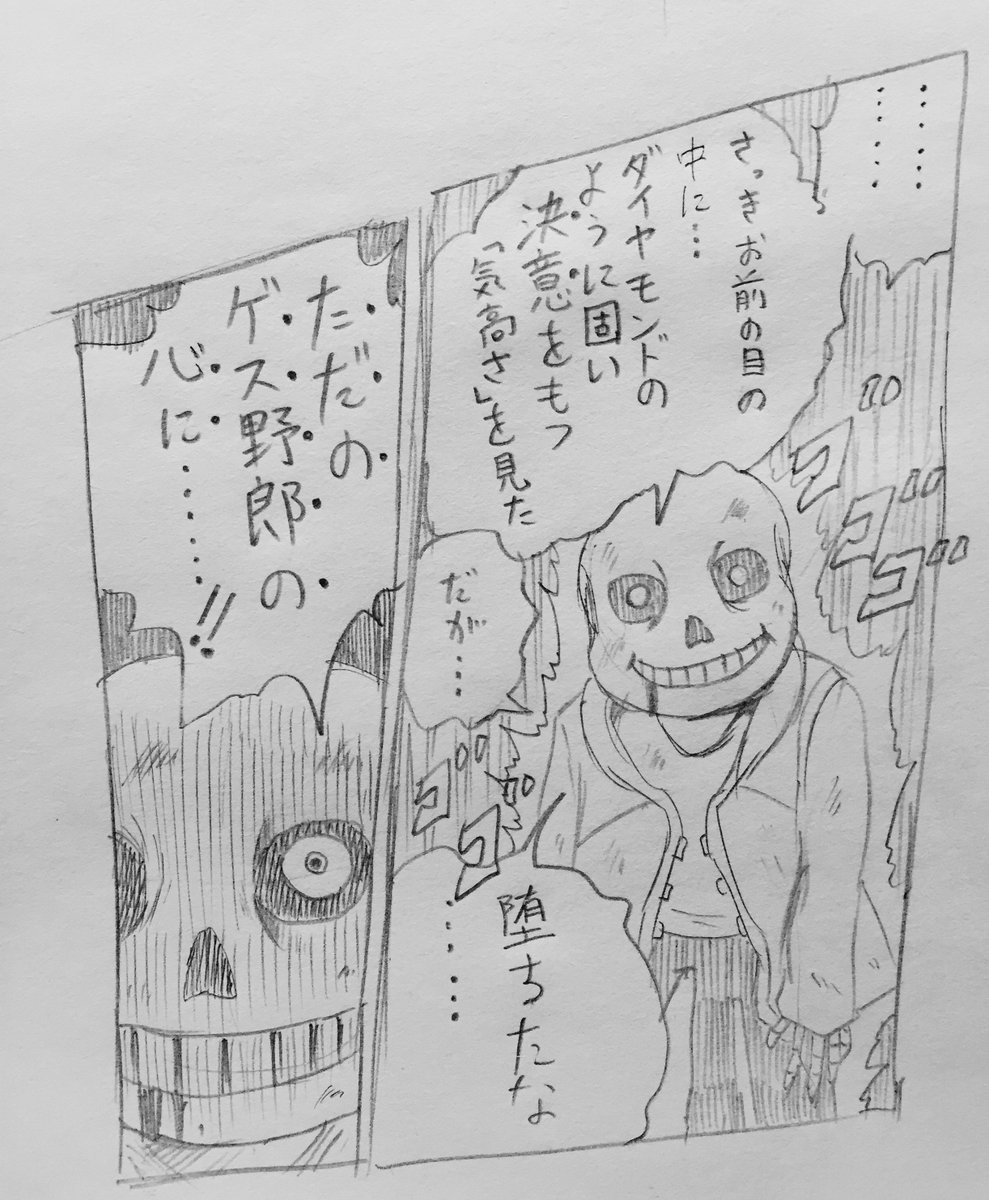 …………
さっきお前の目の
中に…
ダイヤモンドの
ように固い
決意をもつ
「気高さ」を見た
だが…
堕ちたな
……
ゴゴゴ
ゴゴ
ただの
ゲス野郎の
心に……!!